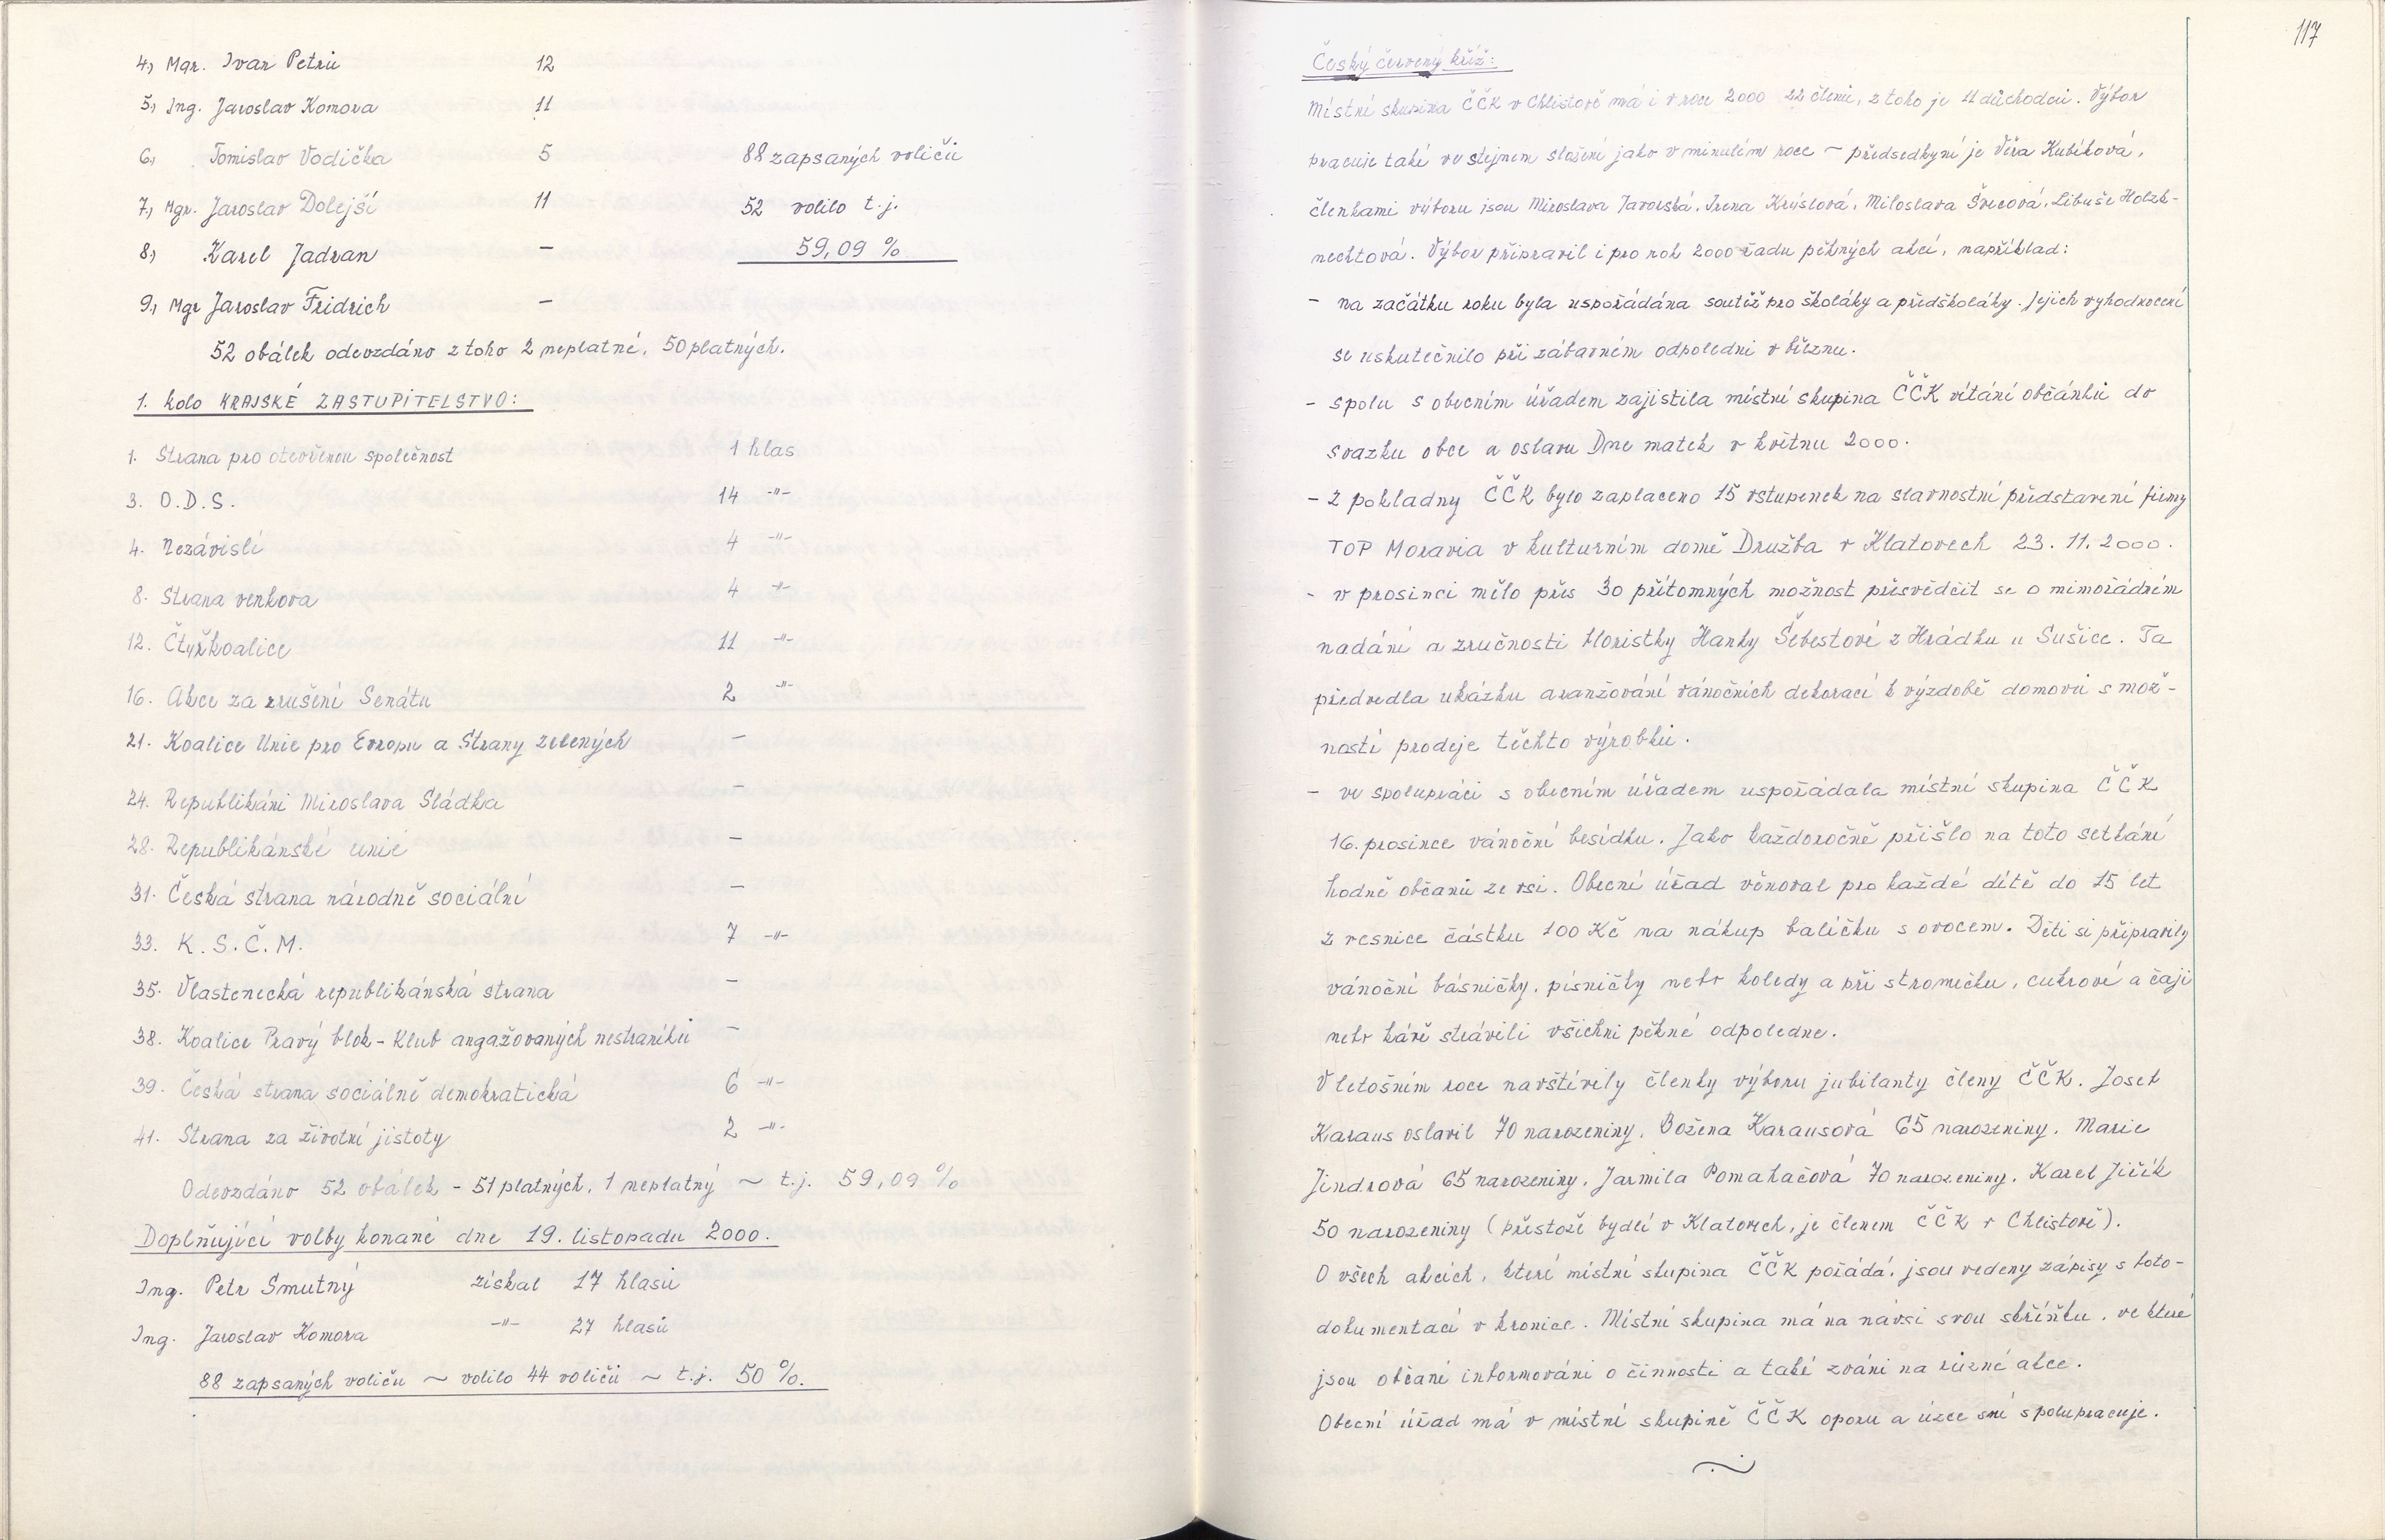 4., Mgr. Ivan Petrů 12
5., Ing. Jaroslav Komora 11
6., Tomislav Vodička 5 88 zapsaných voličů
7., Mgr. Jaroslav Dolejší 11 52 volilo t.j.
8., Karel Jadran — 59,09 %
9., Mgr Jaroslav Fridrich —
52 obálek odevzdáno z toho 2 neplatné, 50 platných.
1. kolo KRAJSKÉ ZASTUPITELSTVO:
1. Strana pro otevřenou společnost 1 hlas
3. O.D.S. 14 -"-
4. Nezávislí 4 -"-
8. Strana venkova 4 -"-
12. Čtyřkoalice 11 -"-
16. Akce za zrušení Senátu 2 -"-
21. Koalice Unie pro Evropu a Strany zelených —
24. Republikáni Miroslava Sládka —
28. Republikánské unie —
31. Česká strana národně sociální —
33. K.S.Č.M. 7 -"-
35. Vlastenecká republikánská strana —
38. Koalice Pravý blok - Klub angažovaných nestraníků —
39. Česká strana sociálně demokratická 6 -"-
41. Strana za životní jistoty 2 -"-
Odevzdáno 52 obálek - 51 platných, 1 neplatný ~ t.j. 59,09 %
Doplňující volby konané dne 19. listopadu 2000.
Ing. Petr Smutný získal 17 hlasů
Ing. Jaroslav Komora -"- 27 hlasů
88 zapsaných voličů ~ volilo 44 voličů ~ t.j. 50 %.
117
Český červený kříž:
Místní skupina ČČK v Chlistově má i v roce 2000 22 členů, z toho je 11 důchodců. Výbor
pracuje také ve stejném složení jako v minulém roce ~ předsedkyní je Věra Kubíková,
členkami výboru jsou Miroslava Javorská, Irena Krýslová, Miloslava Švecová, Libuše Holzk-
nechtová. Výbor připravil i pro rok 2000 řadu pěkných akcí, například:
- na začátku roku byla uspořádána soutěž pro školáky a předškoláky. Jejich vyhodnocení
se uskutečnilo při zábavném odpoledni v březnu.
- spolu s obecním úřadem zajistila místní skupina ČČK vítání občánků do
svazku obce a oslavu Dne matek v květnu 2000.
- z pokladny ČČK bylo zaplaceno 15 vstupenek na slavnostní představení firmy
TOP Moravia v kulturním domě Družba v Klatovech 23. 11. 2000.
- v prosinci mělo přes 30 přítomných možnost přesvědčit se o mimořádném
nadání a zručnosti floristky Hanky Šebestové z Hrádku u Sušice. Ta
předvedla ukázku aranžování vánočních dekorací k výzdobě domovů s mož-
ností prodeje těchto výrobků.
- ve spolupráci s obecním úřadem uspořádala místní skupina ČČK
16. prosince vánoční besídku. Jako každoročně přišlo na toto setkání
hodně občanů ze vsi. Obecní úřad věnoval pro každé dítě do 15 let
z vesnice částku 100 Kč na nákup balíčku s ovocem. Děti si připravily
vánoční básničky, písničky nebo koledy a při stromečku, cukroví a čaji
nebo kávě strávili všichni pěkné odpoledne.
V letošním roce navštívily členky výboru jubilanty členy ČČK. Josef
Karaus oslavil 70 narozeniny, Božena Karausová 65 narozeniny, Marie
Jindrová 65 narozeniny, Jarmila Pomahačová 70 narozeniny, Karel Jiřík
50 narozeniny (přestože bydlí v Klatovech, je členem ČČK v Chlistově).
O všech akcích, které místní skupina ČČK pořádá, jsou vedeny zápisy s foto-
dokumentací v kronice. Místní skupina má na návsi svou skříňku, ve které
jsou občané informováni o činnosti a také zváni na různé akce.
Obecní úřad má v místní skupině ČČK oporu a úzce s ní spolupracuje.